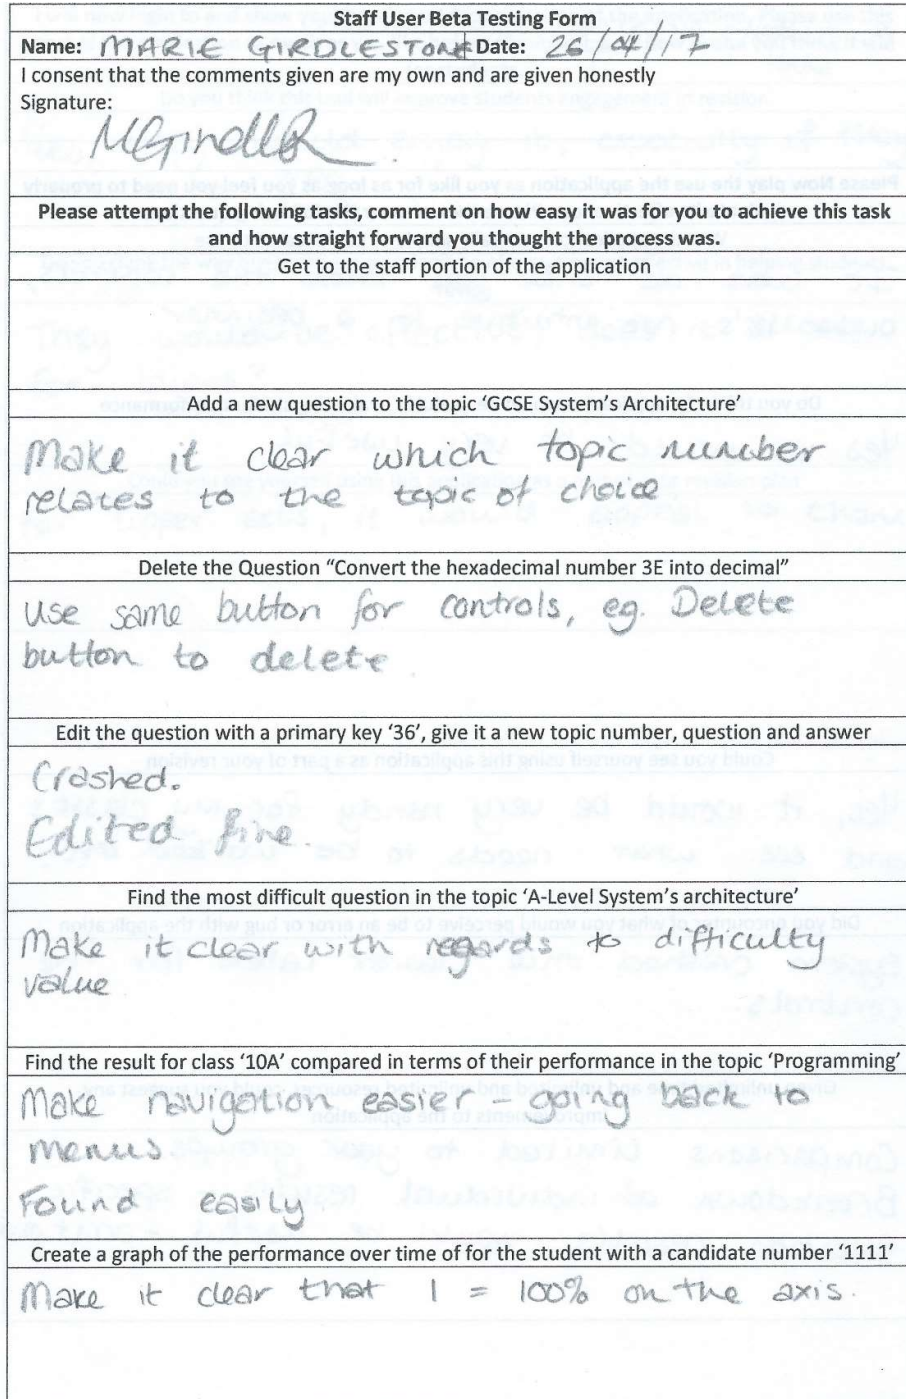 Staff User Beta Testing Form
Name: MARIE GIRDLESTONE Date: 26/04/17
I consent that the comments given are my own and are given honestly
Signature:
Please attempt the following tasks, comment on how easy it was for you to achieve this task
and how straight forward you thought the process was.
Get to the staff portion of the application
Add a new question to the topic ‘GCSE System’s Architecture’
Make it clear which topic number
relates to the topic of choice
Delete the Question “Convert the hexadecimal number 3E into decimal”
Use same button for controls, eg. Delete
button to delete
Edit the question with a primary key ‘36’, give it a new topic number, question and answer
Crashed.
Edited fine.
Find the most difficult question in the topic ‘A-Level System’s architecture’
Make it clear with regards to difficulty
value
Find the result for class ‘10A’ compared in terms of their performance in the topic ‘Programming’
Make navigation easier - going back to
menus.
Found easily.
Create a graph of the performance over time of for the student with a candidate number ‘1111’
Make it clear that 1 = 100% on the axis.